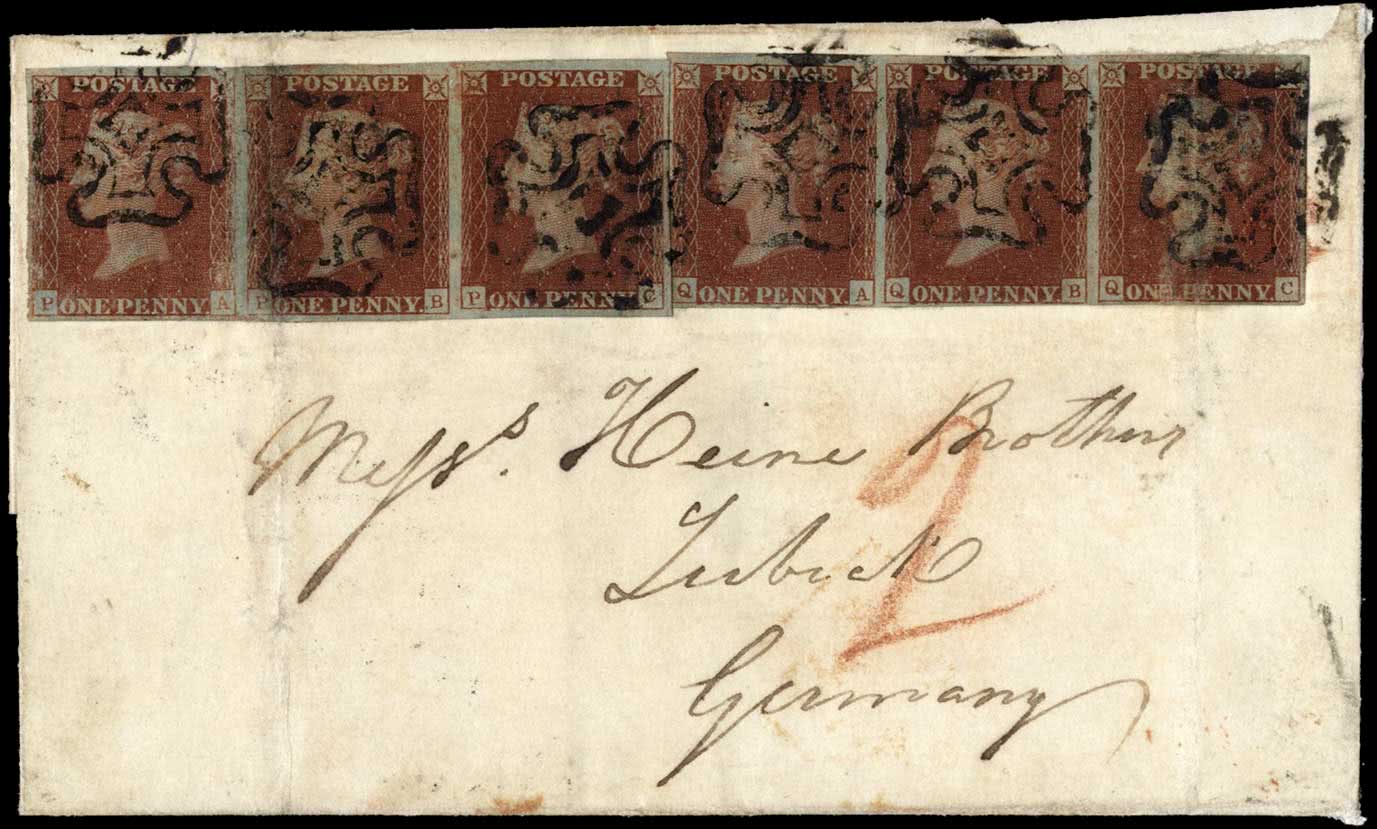 POSTAGE POSTAGE POSTAGE POSTAGE POSTAGE POSTAGE
P ONE PENNY A P ONE PENNY. B P ONE PENNY. C Q ONE PENNY. A Q ONE PENNY. B Q ONE PENNY. C
Messrs. Heine Brothers
Lubeck
2
Germany